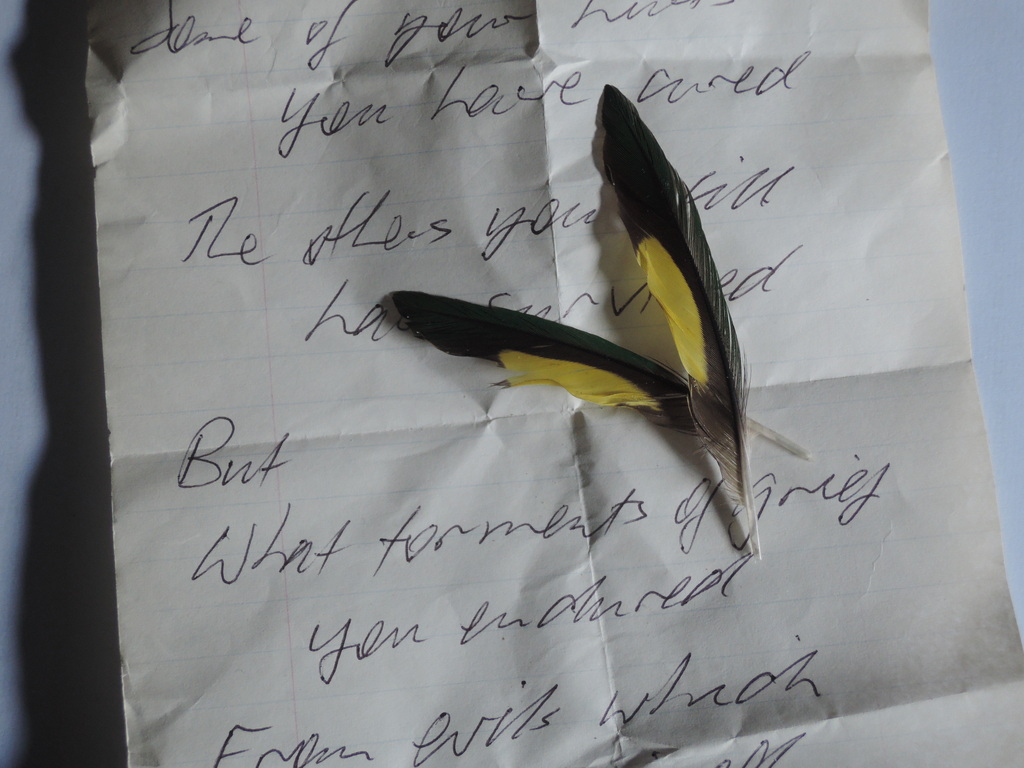 Some of your hurts
you have cured
The others you still
have survived
But
What torments of grief
you endured
From evils which